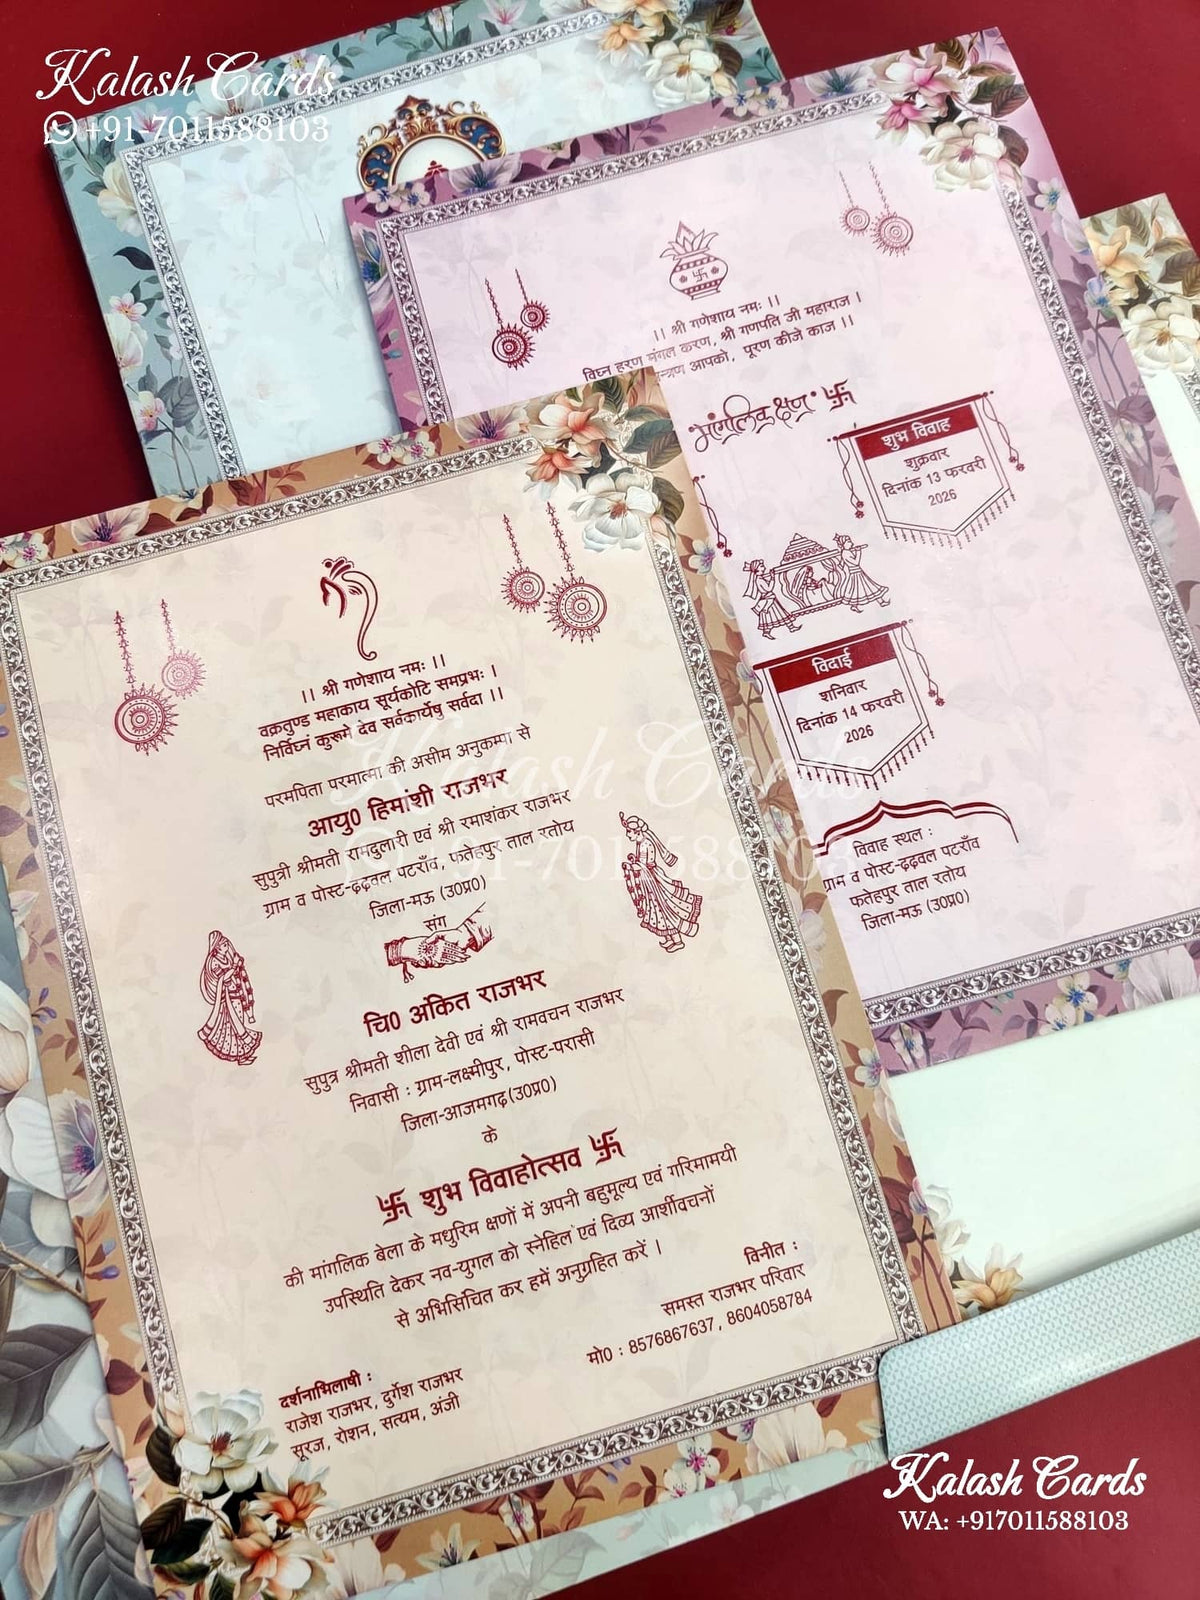 Kalash Cards
+91-7011588103
।। श्री गणेशाय नमः ।।
विघ्न हरण मंगल करण, श्री गणपति जी महाराज ।
आपको, पूरण कीजे काज ।।
मांगलिक क्षण
शुभ विवाह
शुक्रवार
दिनांक 13 फरवरी
2026
विदाई
शनिवार
दिनांक 14 फरवरी
2026
विवाह स्थल :
ग्राम व पोस्ट-ढ़ढ़वल पटराँव
फतेहपुर ताल रतोय
जिला-मऊ (उ0प्र0)
।। श्री गणेशाय नमः ।।
वक्रतुण्ड महाकाय सूर्यकोटि समप्रभः ।
निर्विघ्नं कुरूमे देव सर्वकार्येषु सर्वदा ।।
परमपिता परमात्मा की असीम अनुकम्पा से
आयु0 हिमांशी राजभर
सुपुत्री श्रीमती रामदुलारी एवं श्री रमाशंकर राजभर
ग्राम व पोस्ट-ढ़ढ़वल पटराँव, फतेहपुर ताल रतोय
जिला-मऊ (उ0प्र0)
संग
चि0 अंकित राजभर
सुपुत्र श्रीमती शीला देवी एवं श्री रामवचन राजभर
निवासी : ग्राम-लक्ष्मीपुर, पोस्ट-परासी
जिला-आजमगढ़(उ0प्र0)
के
卐 शुभ विवाहोत्सव 卐
की मांगलिक बेला के मधुरिम क्षणों में अपनी बहुमूल्य एवं गरिमामयी
उपस्थिति देकर नव-युगल को स्नेहिल एवं दिव्य आर्शीवचनों
से अभिसिंचित कर हमें अनुग्रहित करें ।
विनीत :
समस्त राजभर परिवार
मो0 : 8576867637, 8604058784
दर्शनाभिलाषी :
राजेश राजभर, दुर्गेश राजभर
सूरज, रोशन, सत्यम, अंजी
Kalash Cards
+91-7011588103
Kalash Cards
WA: +917011588103